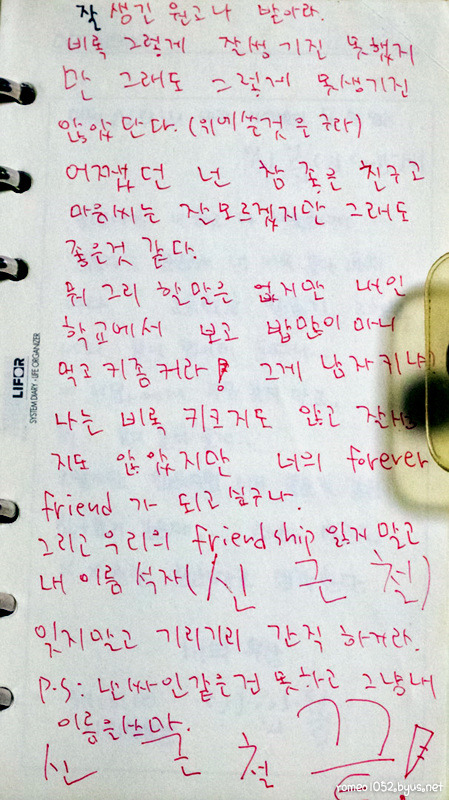 잘 생긴 원고나 받아라.
비록 그렇게 잘생기진 못했지
만 그래도 그렇게 못생기진
않았단다. (위에쓴것은 구라)
어쨌던 넌 참 좋은 친구고
마음씨는 잘모르겠지만 그래도
좋은것 같다.
뭐 그리 할말은 없지만 내일
학교에서 보고 밥많이 마니
먹고 키좀커라! 그게 남자키냐
나는 비록 키크지도 않고 잘생
지도 않았지만 너의 forever
friend 가 되고 싶구나.
그리고 우리의 friendship 잃지 말고
내 이름 석자(신 근 철)
잊지말고 기리기리 간직 하거라.
P.S: 난 싸인같은건 못하고 그냥 내
이름을쓰막.
신 근 철 끄!
LIFOR
SYSTEM DIARY · LIFE ORGANIZER
romeo1052.byus.net